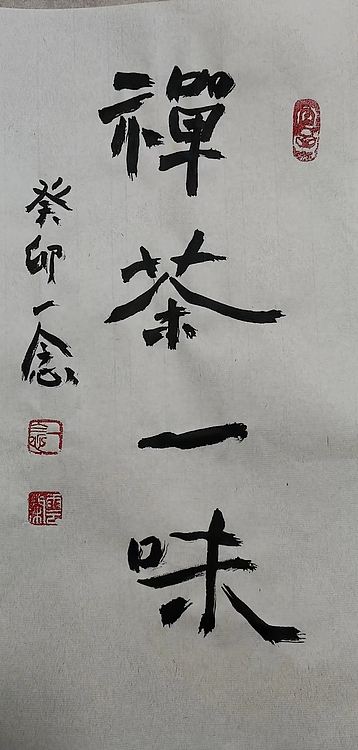 禪茶一味
癸卯一念